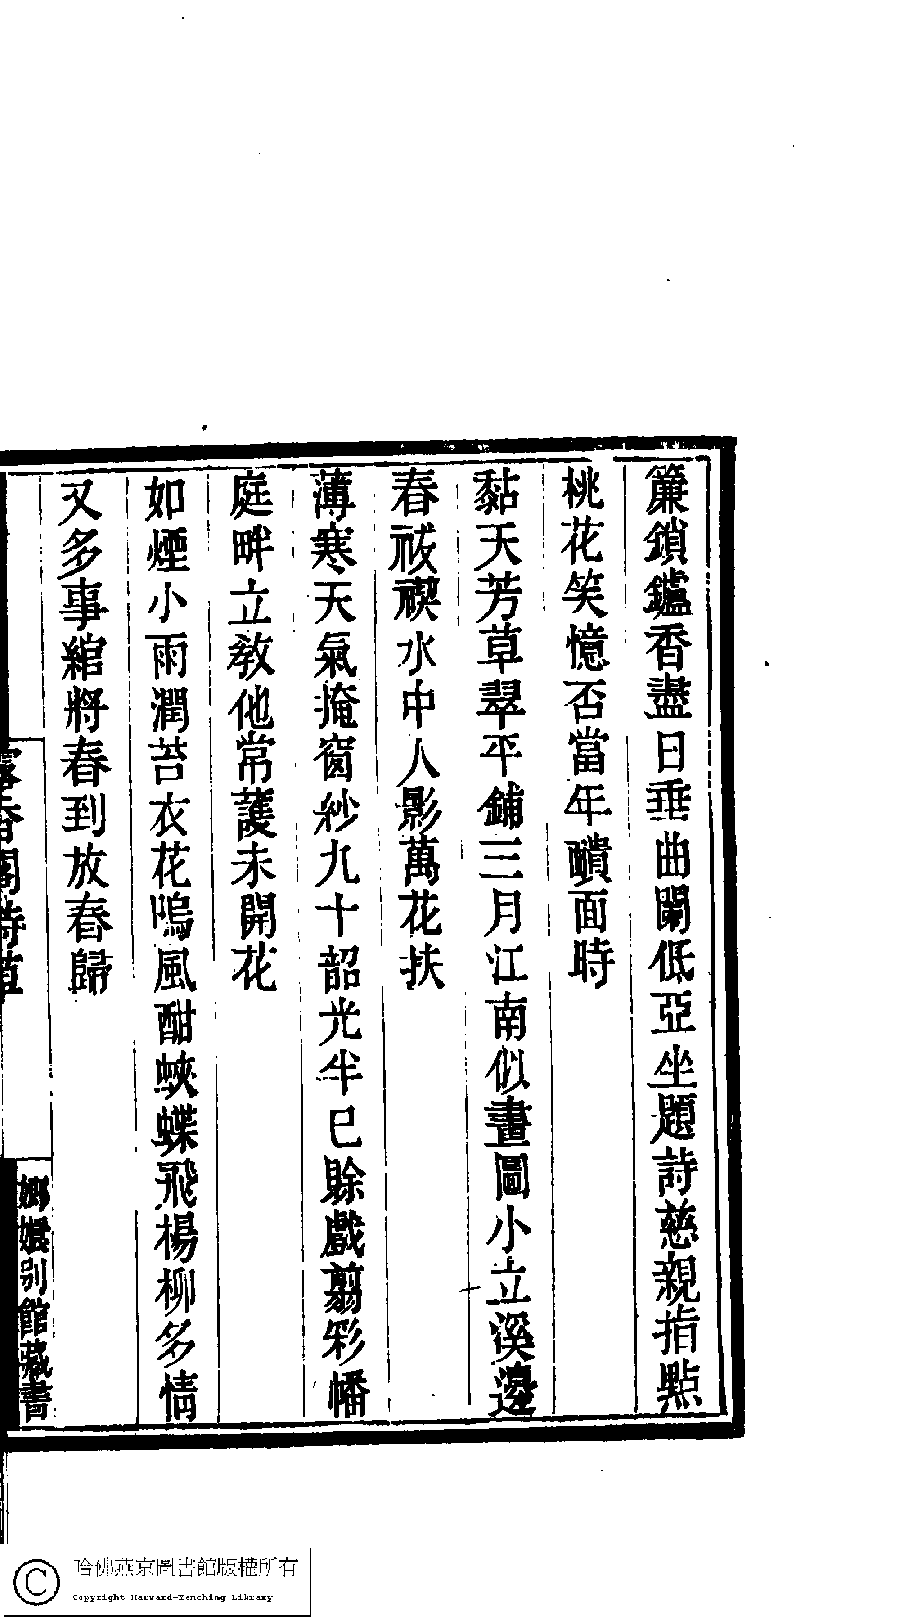 簾鎖鑪香盡日垂曲闌低亞坐題詩慈親指點
桃花笑憶否當年靧面時
黏天芳草翠平鋪三月江南似畫圖小立溪邊
春祓禊水中人影萬花扶
薄寒天氣掩窗紗九十韶光半已賖戲翦彩幡
庭畔立教他常護未開花
如煙小雨潤苔衣花嗚風酣蛺蝶飛楊柳多情
又多事綰將春到放春歸
嫏嬛別館藏書
哈佛燕京圖書館版權所有
Copyright Harvard-Yenching Library